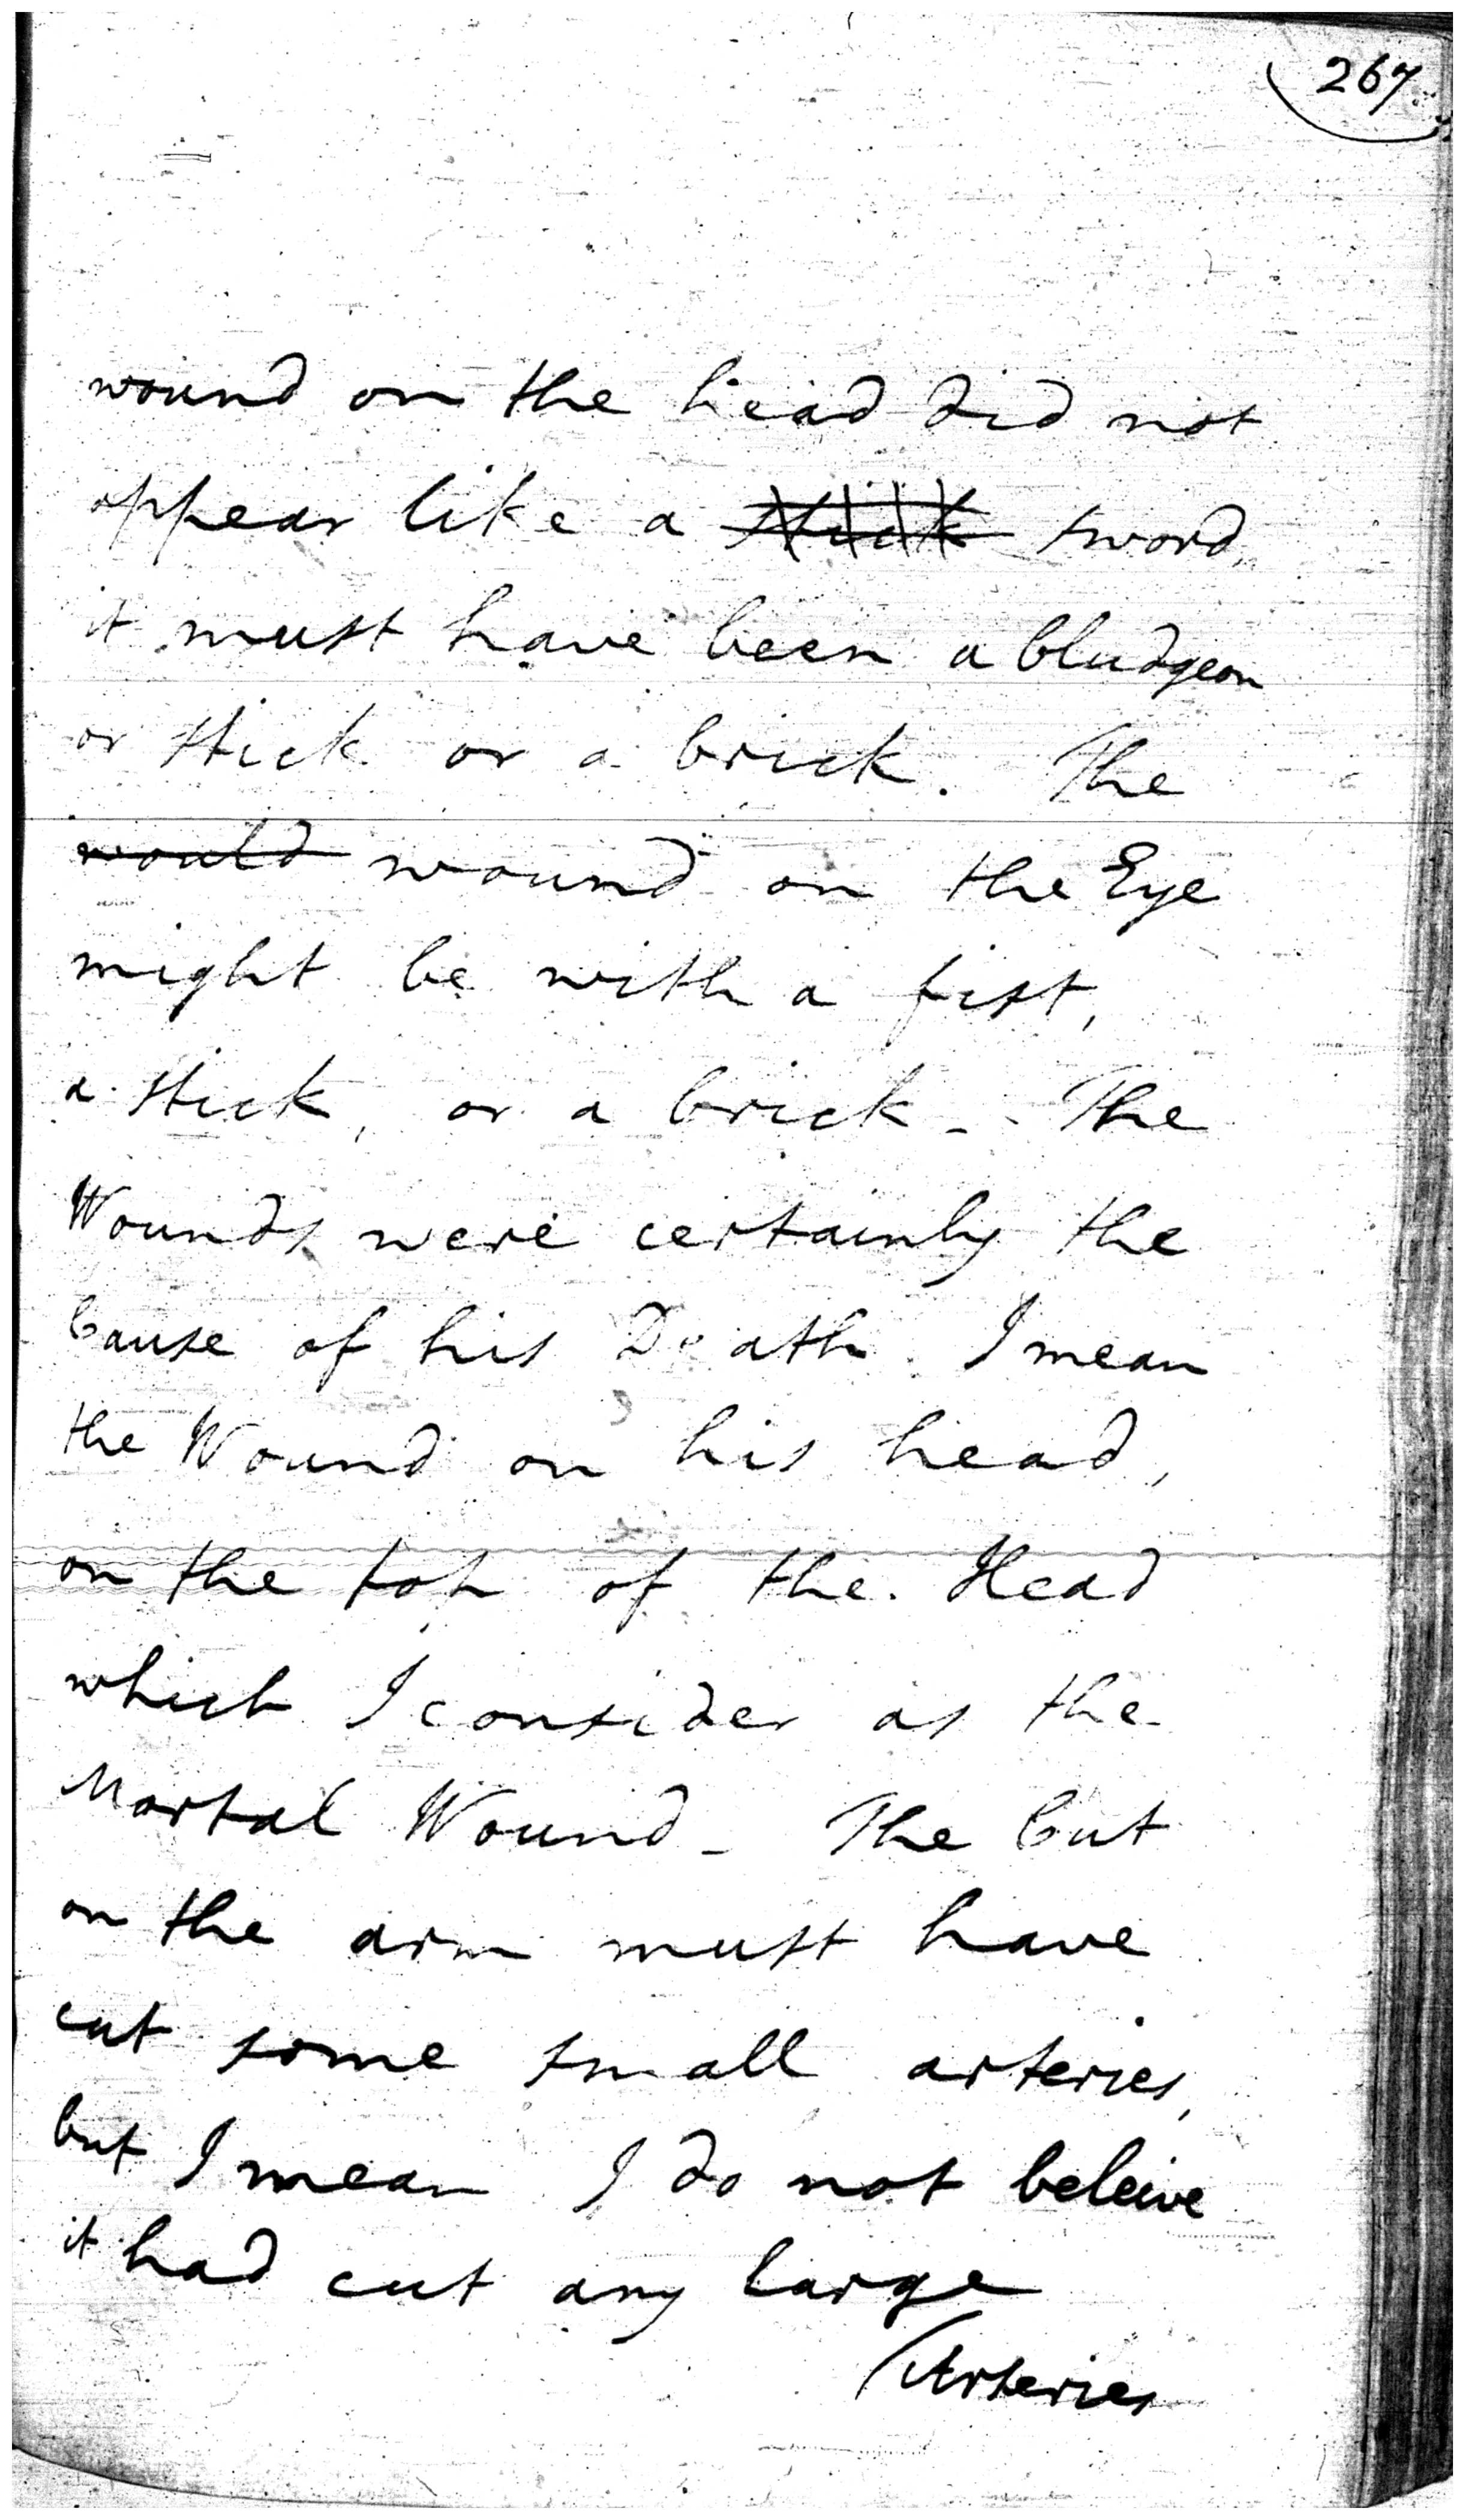 267
wound on the head did not
appear like a stick sword,
it must have been a bludgeon
or stick or a brick. The
would wound on the Eye
might be with a fist,
a stick, or a brick - The
Wounds were certainly the
Cause of his Death. I mean
the Wound on his head,
on the top of the Head
which I consider as the
Mortal Wound - The Cut
on the arm must have
cut some small arteries,
but I mean I do not beleive
it had cut any large
(Arteries